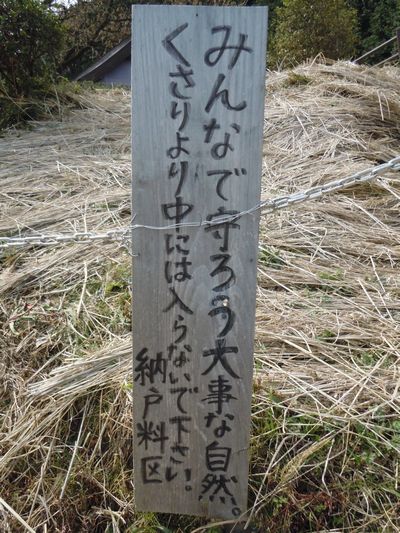 みんなで守ろう大事な自然。
くさりより中には入らないで下さい。
納戸料区